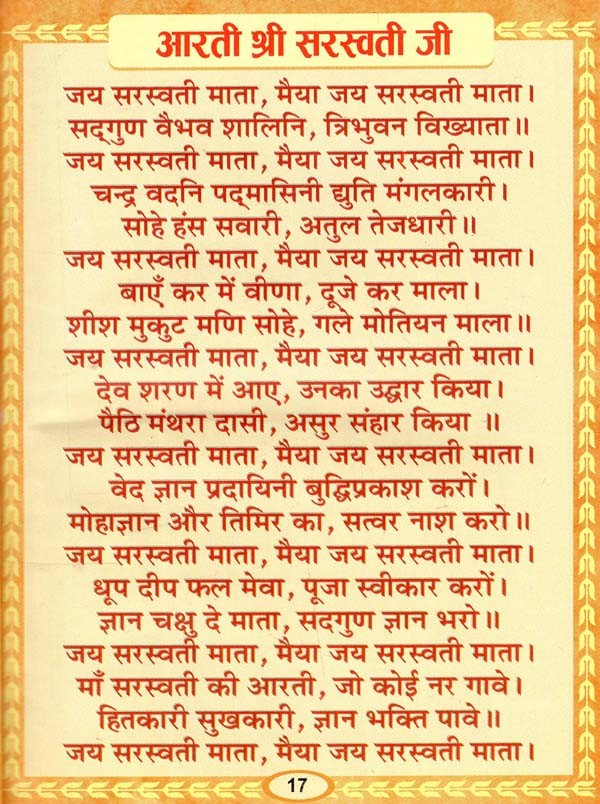 आरती श्री सरस्वती जी
जय सरस्वती माता, मैया जय सरस्वती माता।
सद्‌गुण वैभव शालिनि, त्रिभुवन विख्याता॥
जय सरस्वती माता, मैया जय सरस्वती माता।
चन्द्र वदनि पद्‌मासिनी द्युति मंगलकारी।
सोहे हंस सवारी, अतुल तेजधारी॥
जय सरस्वती माता, मैया जय सरस्वती माता।
बाएँ कर में वीणा, दूजे कर माला।
शीश मुकुट मणि सोहे, गले मोतियन माला॥
जय सरस्वती माता, मैया जय सरस्वती माता।
देव शरण में आए, उनका उद्धार किया।
पैठि मंथरा दासी, असुर संहार किया ॥
जय सरस्वती माता, मैया जय सरस्वती माता।
वेद ज्ञान प्रदायिनी बुद्धिप्रकाश करों।
मोहाज्ञान और तिमिर का, सत्वर नाश करो॥
जय सरस्वती माता, मैया जय सरस्वती माता।
धूप दीप फल मेवा, पूजा स्वीकार करों।
ज्ञान चक्षु दे माता, सदगुण ज्ञान भरो॥
जय सरस्वती माता, मैया जय सरस्वती माता।
माँ सरस्वती की आरती, जो कोई नर गावे।
हितकारी सुखकारी, ज्ञान भक्ति पावे॥
जय सरस्वती माता, मैया जय सरस्वती माता।
17